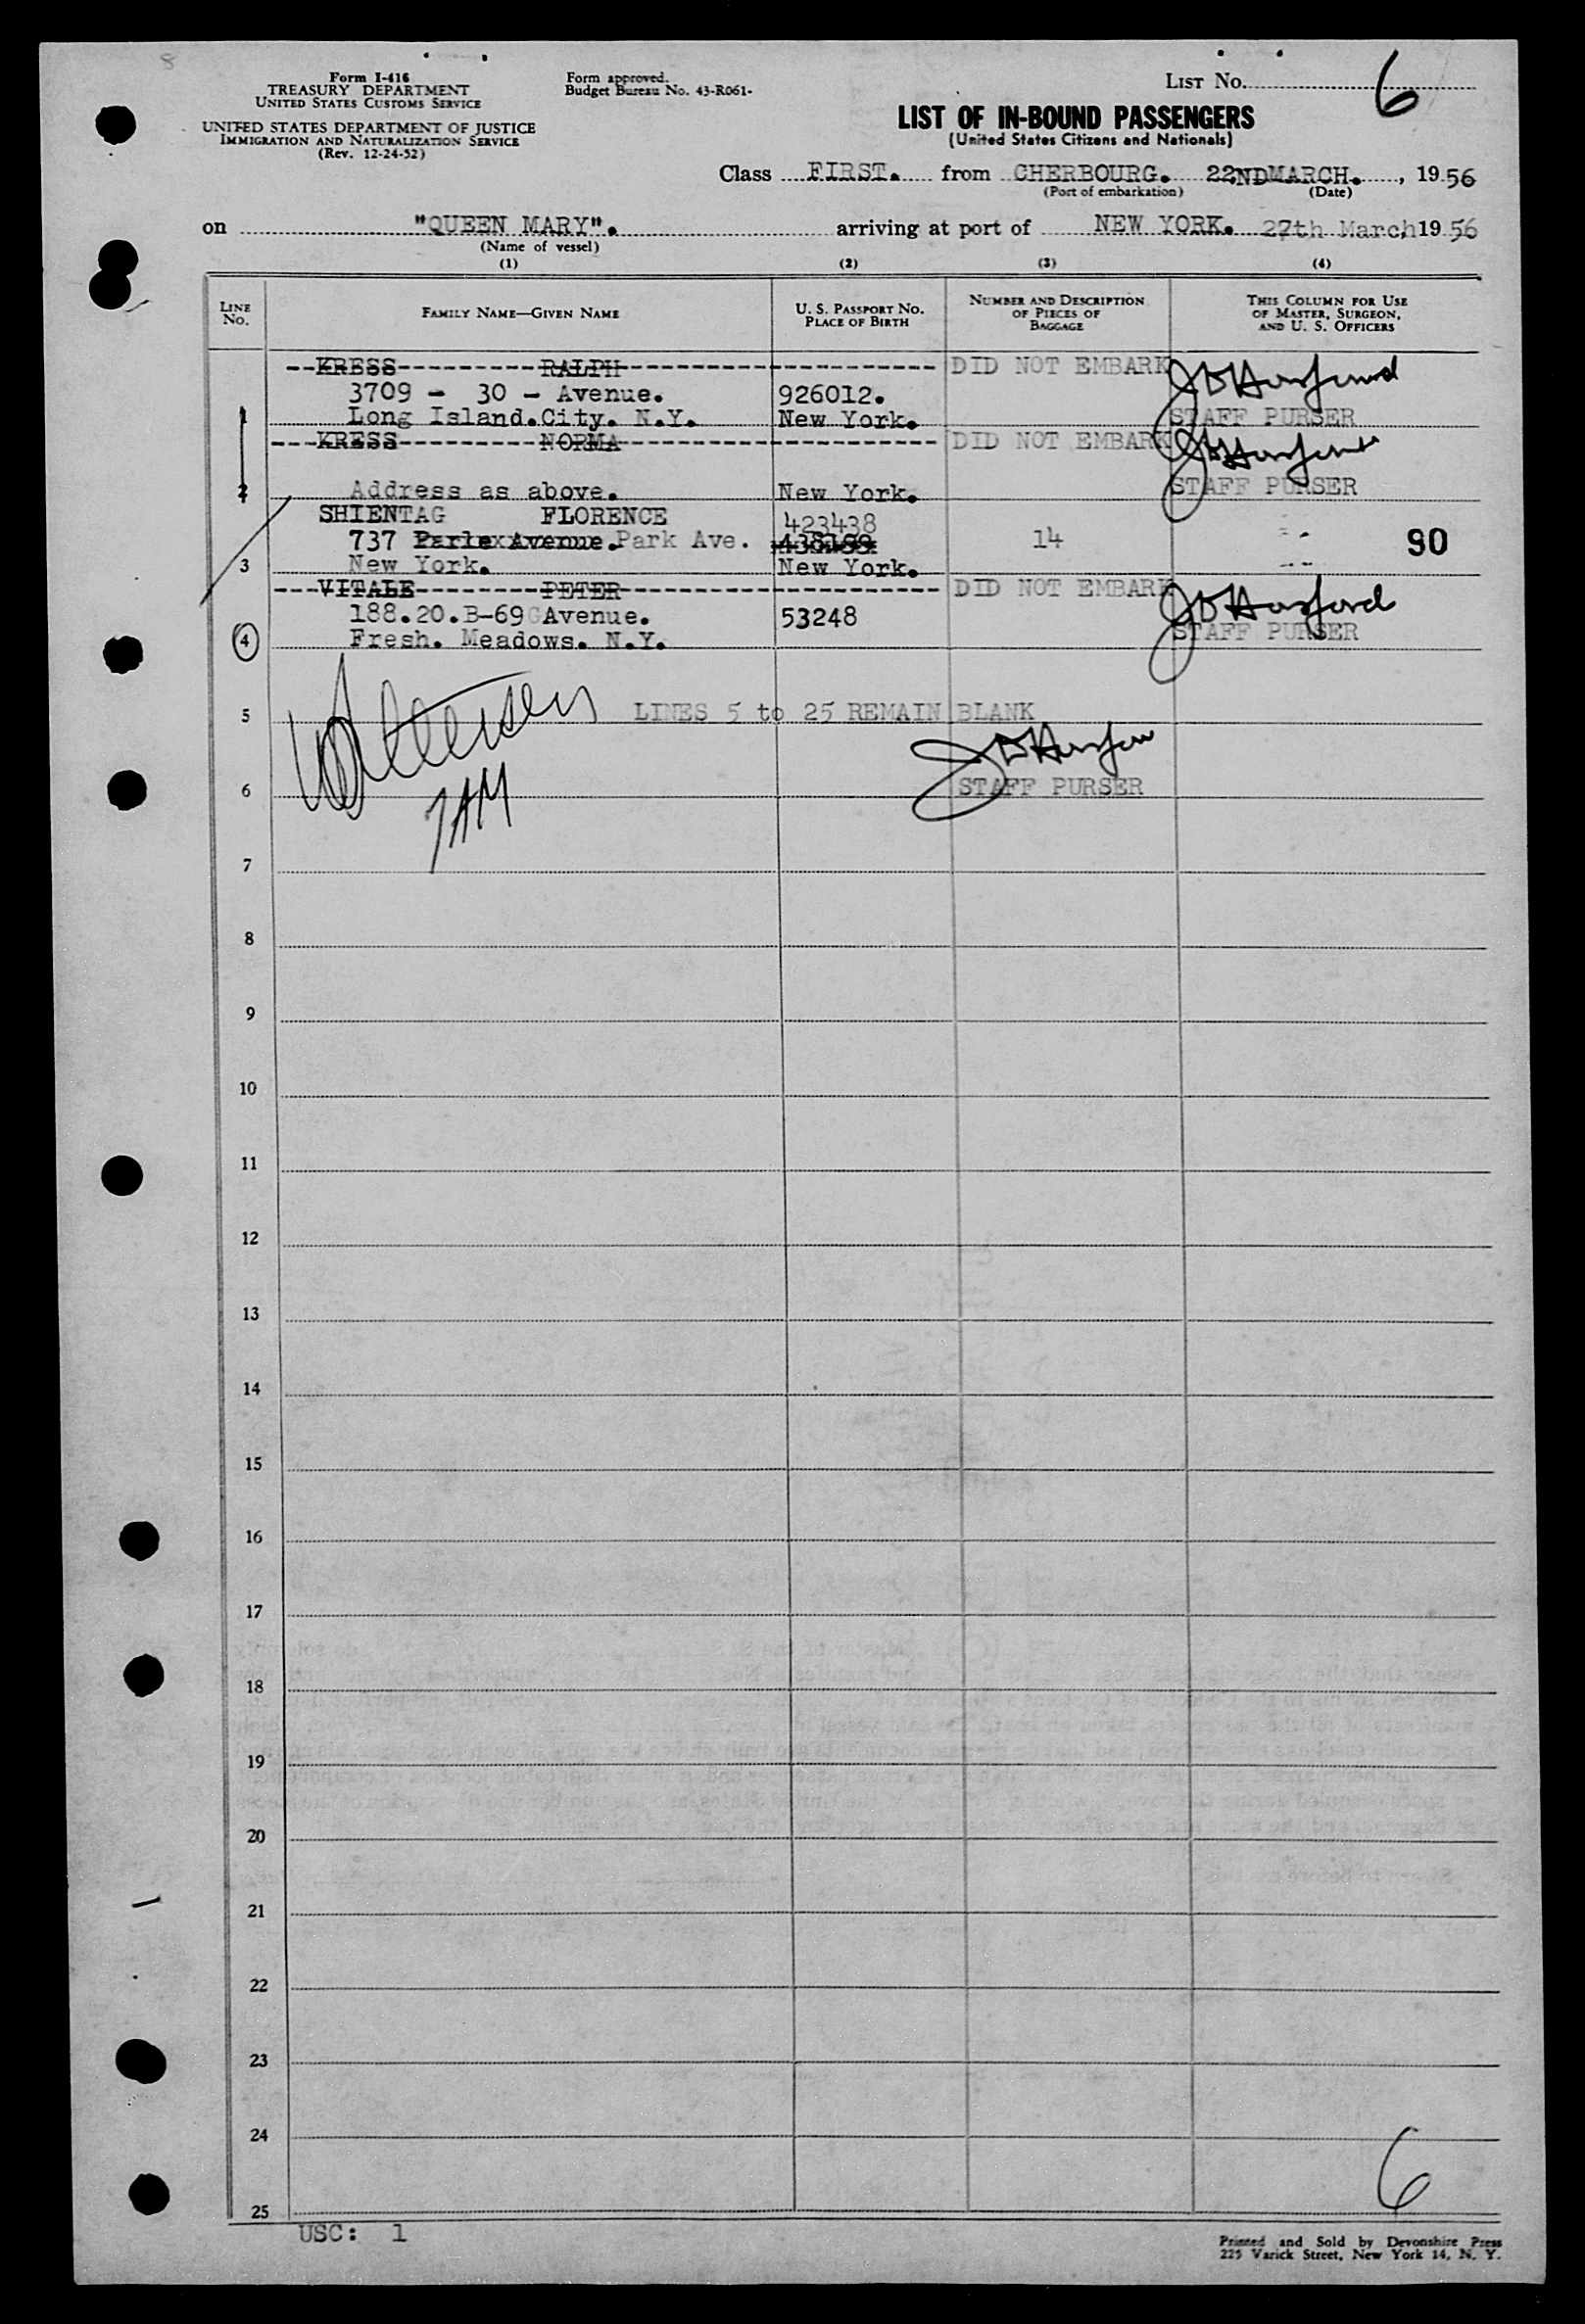 8
Form I-416
TREASURY DEPARTMENT
UNITED STATES CUSTOMS SERVICE
UNITED STATES DEPARTMENT OF JUSTICE
IMMIGRATION AND NATURALIZATION SERVICE
(Rev. 12-24-52)
Form approved.
Budget Bureau No. 43-R061-
LIST No. 6
LIST OF IN-BOUND PASSENGERS
(United States Citizens and Nationals)
Class FIRST. from CHERBOURG. 22ND MARCH. , 1956
(Port of embarkation) (Date)
on "QUEEN MARY". arriving at port of NEW YORK. 27th March 1956
(Name of vessel)
(1) (2) (3) (4)
LINE No. FAMILY NAME—GIVEN NAME U. S. PASSPORT No. PLACE OF BIRTH NUMBER AND DESCRIPTION OF PIECES OF BAGGAGE THIS COLUMN FOR USE OF MASTER, SURGEON, AND U. S. OFFICERS
--KRESS---------RALPH-------------------- DID NOT EMBARK
3709 - 30 - Avenue. 926012.
1 Long Island.City. N.Y. New York. STAFF PURSER
---KRESS---------NORMA-------------------- DID NOT EMBARK
2 Address as above. New York. STAFF PURSER
SHIENTAG FLORENCE 423438
737 Park Ave. 14 90
3 New York. New York.
---VITALE--------PETER-------------------- DID NOT EMBARK
188.20.B-69 Avenue. 53248
4 Fresh. Meadows. N.Y. STAFF PURSER
5 LINES 5 to 25 REMAIN BLANK
6 STAFF PURSER
7
8
9
10
11
12
13
14
15
16
17
18
19
20
21
22
23
24
6
25
USC: 1
Printed and Sold by Devonshire Press
225 Varick Street, New York 14, N. Y.